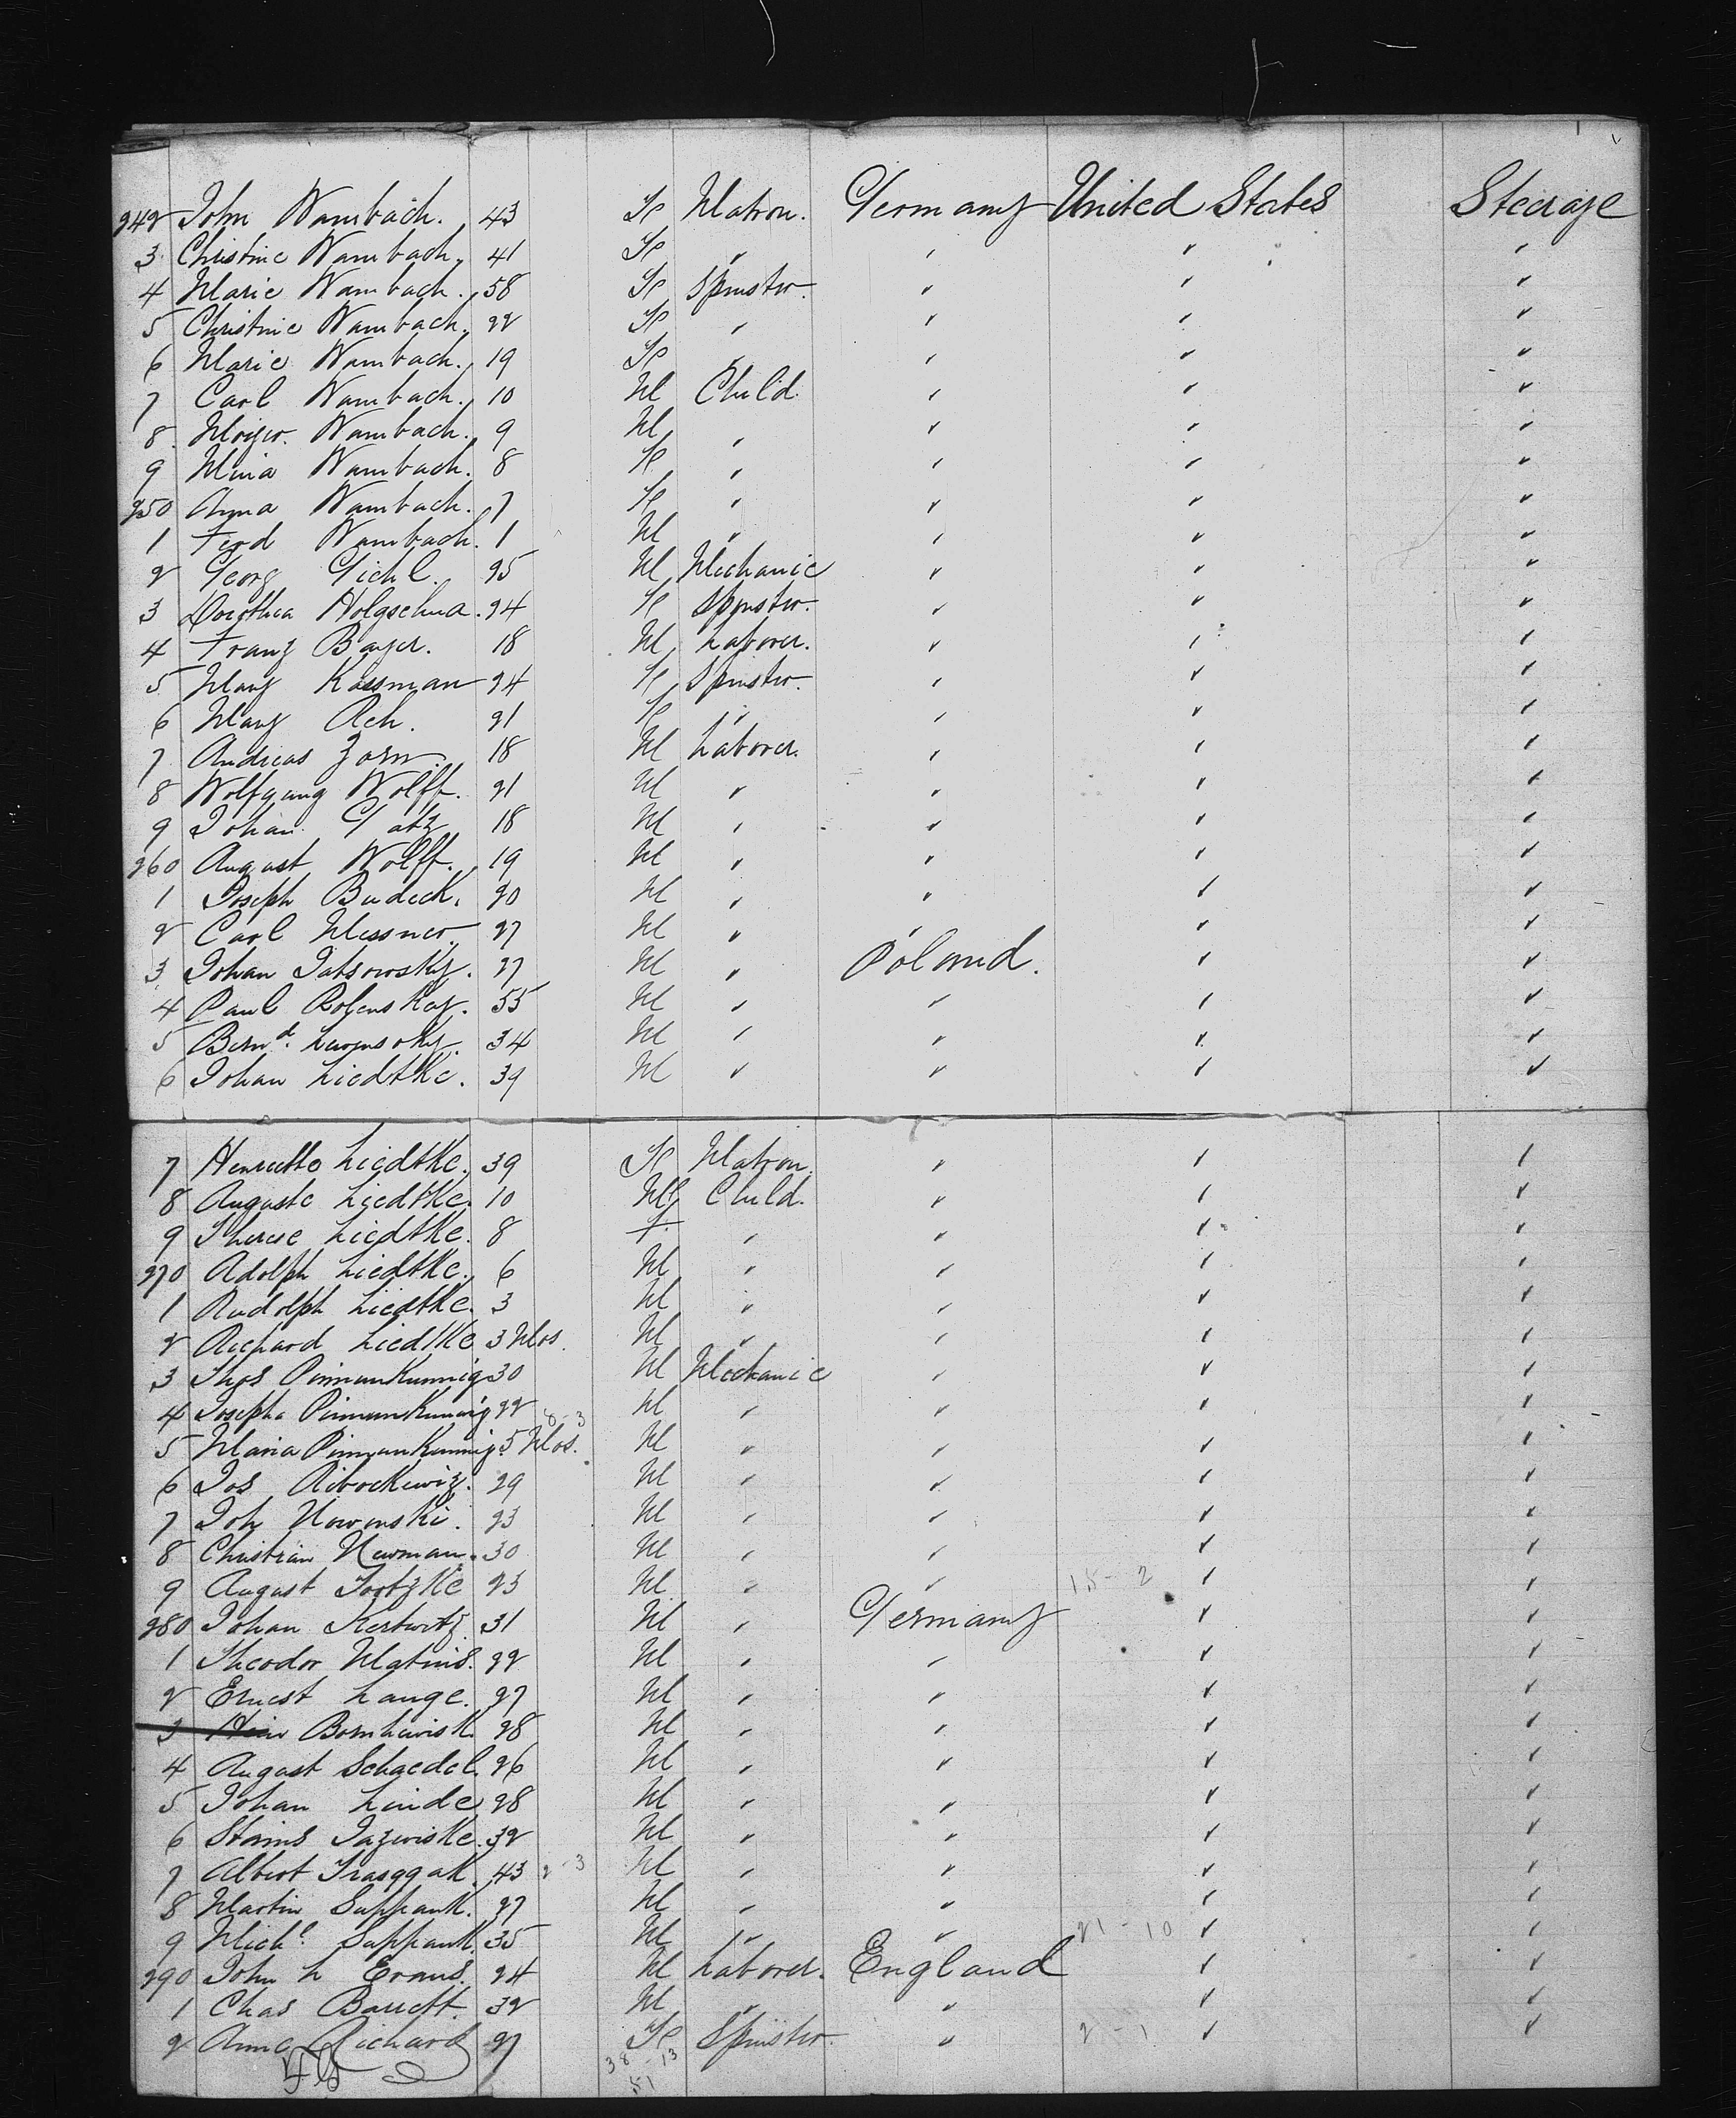 242 John Wambach. 43 Fe Matron. Germany United States Steerage
3 Christine Wambach. 41 Fe " " " "
4 Marie Wambach. 58 Fe Spinster. " " "
5 Christine Wambach. 22 Fe " " " "
6 Marie Wambach. 19 Fe " " " "
7 Carl Wambach. 10 M Child " " "
8 Wambach. 9 M " " " "
9 Mina Wambach. 8 Fe " " " "
250 Anna Wambach. 7 Fe " " " "
1 Ferd Wambach. 1 M " " " "
2 Georg Gichl. 25 M Mechanic " " "
3 Dorothea 24 Fe Spinster. " " "
4 Franz Bayer. 18 M Laborer. " " "
5 Mary Kassman 24 Fe Spinster. " " "
6 Mary Ach. 21 Fe " " " "
7 Andreas Zorn. 18 M Laborer. " " "
8 Wolfgang Wolff. 21 M " " " "
9 Johan Gatz 18 M " " " "
260 August Wolff. 19 M " " " "
1 Joseph Budeck. 20 M " " " "
2 Carl Messner. 27 M " " " "
3 Johan 27 M " Poland. " "
4 Paul 55 M " " " "
5 Bernd. 34 M " " " "
6 Johan Liedtke. 39 M " " " "
7 Henriette Liedtke. 39 Fe Matron. " " "
8 Auguste Liedtke. 10 Child. " " "
9 Therese Liedtke. 8 F. " " " "
270 Adolph Liedtke. 6 M " " " "
1 Rudolph Liedtke. 3 M " " " "
2 Richard Liedtke 3 Mos. M " " " "
3 Thos 30 M Mechanic " " "
4 Josepha 22 M " " " "
5 Maria 5 Mos. M " " " "
6 Jos 29 M " " " "
7 Joh Nowenski. 23 M " " " "
8 Christian Newman. 30 M " " " "
9 August 23 M " " 15-2 " "
280 Johan Kertwitz. 31 M " Germany " "
1 Theodor 22 M " " " "
2 Ernest Lange. 27 M " " " "
3 28 M " " " "
4 August Schaedel. 26 M " " " "
5 Johan Linde 28 M " " " "
6 32 M " " " "
7 Albert 43 2-3 M " " " "
8 Martin Suppank. 27 M " " " "
9 Michl. Suppank. 35 M " " 21-10 " "
290 John L Evans. 24 M Laborer. England " "
1 Chas Barrett. 32 M " " " "
2 Anne Richard 27 Fe Spinster. " 2-1 " "
38-13
51